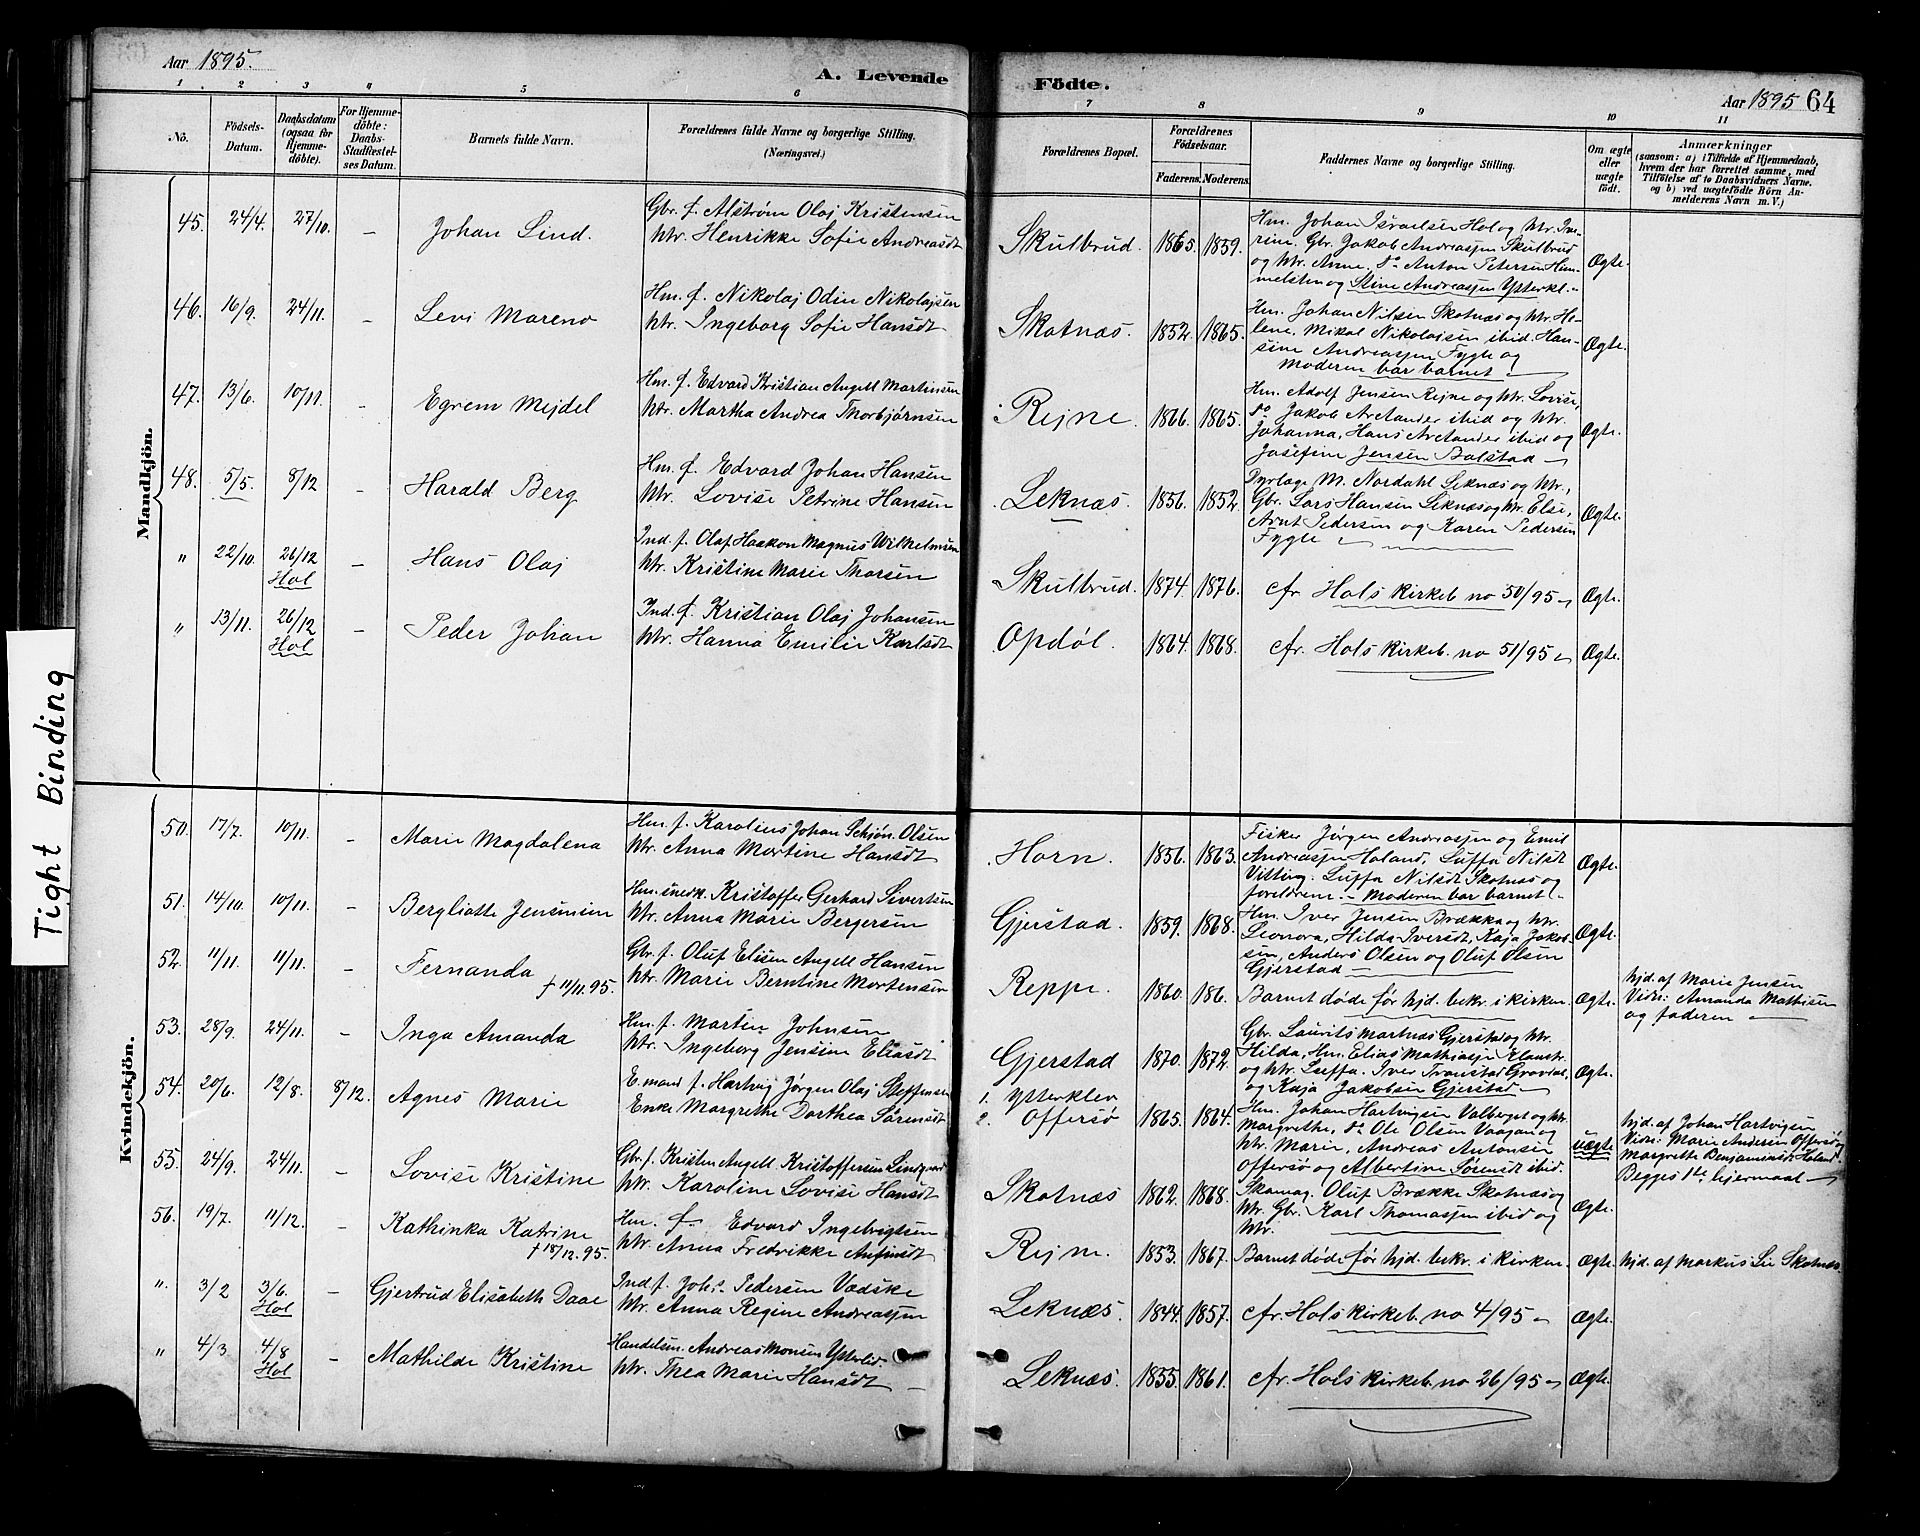 Aar 1895.
A. Levende
Födte.
Aar 1895 64
1
2
3
4
5
6
7
8
9
10
11
No.
Födsels-Datum.
Daabsdatum (ogsaa for Hjemme-döbte).
For Hjemme-döbte: Daabs-Stadfæstel-ses Datum.
Barnets fulde Navn.
Forældrenes fulde Navne og borgerlige Stilling.
(Næringsvei.)
Forældrenes Bopæl.
Forældrenes Födselsaar.
Faderens.
Moderens.
Faddernes Navne og borgerlige Stilling.
Om ægte eller uægte født.
Anmærkninger
(saasom: a) i Tilfælde af Hjemmedaab,
hvem der har forrettet samme, med
Tilføielse af to Daabsvidners Navne.
og b) ved uægtefödte Börn An-
melderens Navn m. V.)
Mandkjön.
45. 24/4. 27/10. – Johan Lind.
Gbr. f. Alstrøm Olaj Kristensen
Htr. Henrikke Sofie Andreasdt
Skulbrud. 1865. 1859.
Hm. Johan Israelsen Hol og Htr.
rine. Gbr. Jakob Andreassen Skulbrud
og Htr. Anne. do Anton Petersen Him-
melsten og Stine Andreassen Ysterkl.
Ægte.
46. 16/9. 24/11. – Levi Mareno
Hm. f. Nikolaj Odin Nikolajsen
Htr. Ingeborg Sofie Hansdt
Skotnæs. 1852. 1865.
Hm. Johan Nilsen Skotnæs og Htr. He-
lene. Mikal Nikolaisen ibid. Han-
sine Andreassen Fygle og
Moderen bar barnet
Ægte.
47. 13/6. 10/11. – Egrem Mejdel
Hm. f. Edvard Kristian Angell Martinsen
Htr. Martha Andrea Thorbjørnsen
Rejne. 1866. 1865.
Hm. Adolf Jensen Rejne og Htr. Lovise,
do Jakob Arctander ibid og Htr.
Johanna, Hans Arctander ibid og
Josefine Jensen Balstad
Ægte.
48. 5/5. 8/12 – Harald Berg
Hm. f. Edvard Johan Hansen
Htr. Lovise Petrine Hansen
Leknæs. 1856. 1852.
M. Nordahl Leknæs og Htr.,
Gbr. Lars Hansen Leknæs og Htr. Else,
Arnt Pedersen og Karen Pedersen
Fygle
Ægte.
" 22/10. 26/12 Hol – Hans Olaj
Ind. f. Olaf Haakon Magnus Wilhelmsen
Htr. Kristine Marie Thorsen
Skulbrud. 1874. 1876. cfr. Hols kirkeb. no 50/95 Ægte.
" 13/11. 26/12 Hol – Peder Johan
Ind. f. Kristian Olaj Johansen
Htr. Hanna Emilie Karlsdt
Opdøl. 1864. 1868. cfr. Hols kirkeb. no 51/95 Ægte.
Tight Binding
Kvindekjön.
50. 17/7. 10/11. – Marie Magdalena
Hm. f. Karolius Johan Schjøn. Olsen
Htr. Anna Martine Hansdt
Horn. 1856. 1863.
Fisker Jørgen Andreassen og Emil
Andreassen Holand, Luffa Nilsdt
Vitting. Luffa Nilsdt Skotnæs og
forældrene. – Moderen bar barnet.
Ægte.
51. 14/10. 10/11. – Bergliotte Jensmine
Hm. snedk. Kristoffer Gerhard Sivertsen
Htr. Anna Marie Bergersen
Gjerstad. 1859. 1868.
Hm. Iver Jensen Brækka og Htr.
Leonora, Hilda Iversdt, Kaja Jakob-
sen, Anders Olsen og Oluf Olsen
Gjerstad
Ægte.
52. 11/11. 11/11. – Fernanda † 11/11.95.
Gbr. f. Oluf Elisen Angell Hansen
Htr. Marie Berntine Mortensen
Reppe. 1860. 186. Barnet døde før hjd. bekr. i kirken. Ægte.
hjd. af Marie Jensen
Vidn: Amanda Mathisen
og faderen
53. 28/9. 24/11. – Inga Amanda
Hm. f. Martin Johnsen
Htr. Ingeborg Jensine Eliasdt
Gjerstad 1870. 1872.
Gbr. Laurits Martnæs Gjerstad og Htr.
Hilda, Hm. Elias Mathiassen
og Htr. Luffa. Iver Tronstad
og Kaja Jakobsen Gjerstad
Ægte.
54. 20/6. 12/8. 8/12. Agnes Marie
E. mand f. Hartvig Jørgen Olaj Steffensen
Enke Margrethe Dorthea Sørensdt
1. Ysterklev
2. Offersø 1865. 1864.
Hm. Johan Hartvigsen Valberget og Htr.
Margrethe, do Ole Olsen Vaagan og
Htr. Marie, Andreas Antonsen
Offersø og Albertine Sørensdt ibid.
uægte
hjd. af Johan Hartvigsen
Vidn: Marie Andersen Offersø
Margrethe Benjaminsdt Holand.
Begges 1ste lejermaal
55. 24/9. 24/11. – Lovise Kristine
Gbr. f. Kristen Angell Kristoffersen Lindgaard
Htr. Karoline Lovise Hansdt
Skotnæs 1862. 1868.
Skomag. Oluf Brække Skotnæs og
Htr. Gbr. Karl Thomassen ibid og
Htr.
Ægte.
56. 19/7. 11/12. – Kathinka Katrine † 18/12.95.
Hm. f. Edvard Ingebrigtsen
Htr. Anna Fredrikke Anfinsdt
Rejne. 1853. 1867. Barnet døde før hjd. bekr. i kirken. Ægte. hjd. af Markus Lie Skotnæs.
" 3/2 3/6 Hol – Gjertrud Elisabeth Daae
Ind f. Johs. Pedersen Vædske
Htr. Anna Regine Andreassen
Leknæs. 1844. 1857. cfr. Hols kirkeb. no 4/95 Ægte.
" 4/3 4/8 Hol – Mathilde Kristine
Handelsm. Andreas Monsen Ysterlid.
Htr. Thea Marie Hansdt
Leknæs. 1855. 1861. cfr. Hols kirkeb. no 26/95 Ægte.